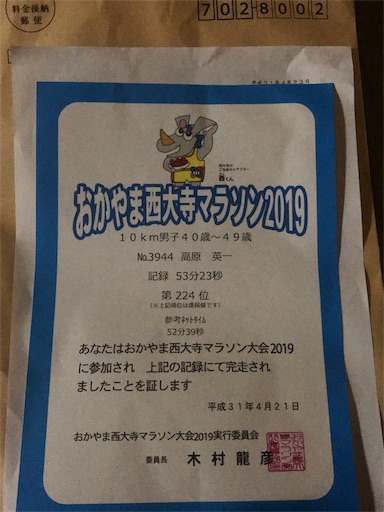 料金後納
郵便
7028002
おかやま西大寺マラソン2019
10km男子40歳～49歳
No.3944 高原 英一
記録 53分23秒
第 224 位
(※上記順位は速報値です)
参考ネットタイム
52分39秒
あなたはおかやま西大寺マラソン大会2019
に参加され 上記の記録にて完走され
ましたことを証します
平成31年4月21日
おかやま西大寺マラソン大会2019実行委員会
委員長 木村龍彦